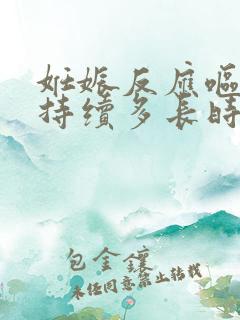 妊娠反應嘔
持續多長時
包金鑲
未經同意禁止轉載